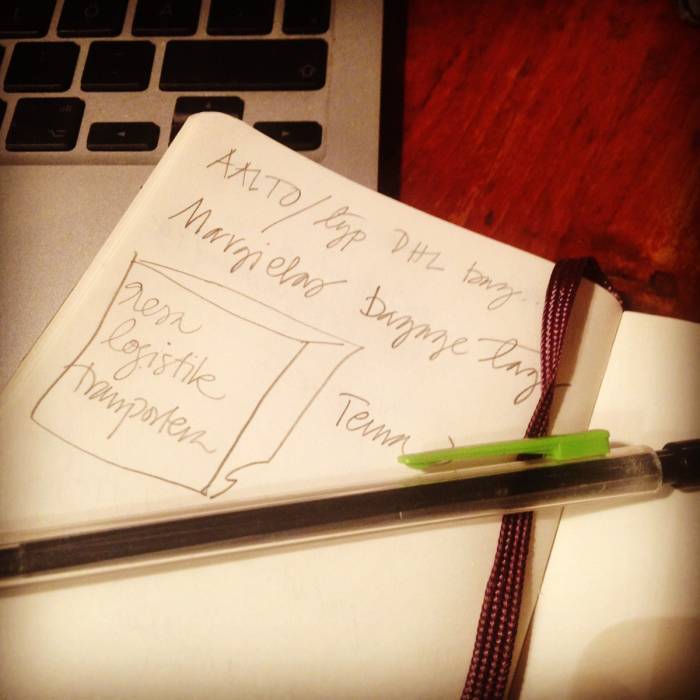 AALTO/typ DHL bag..
Margielas bagage tag
resa
logistik
transportera
Tema